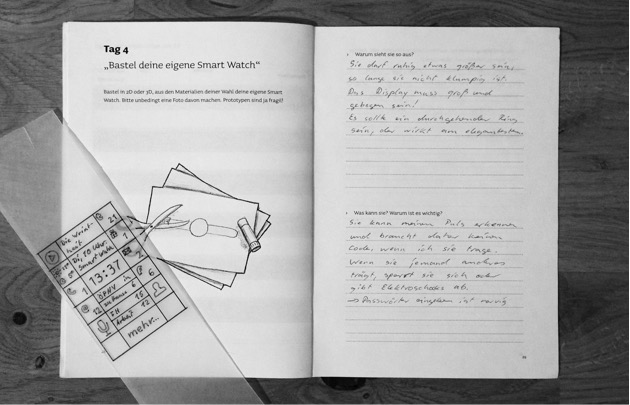 Tag 4
„Bastel deine eigene Smart Watch“
Bastel in 2D oder 3D, aus den Materialien deiner Wahl deine eigene Smart
Watch. Bitte unbedingt eine Foto davon machen. Prototypen sind ja fragil!
Die
heit
Di, 10 Uhr
Smartwatch
21
13:37
1
2
ÖPNV
6
12
Zu Hause 6
16
Arbeit 12
mehr...
Warum sieht sie so aus?
Sie darf ruhig etwas größer sein,
so lang sie nicht klumpig ist.
Das Display muss groß und
gebogen sein!
Es sollte ein durchgehender Ring
sein, der wirkt am elegantesten.
Was kann sie? Warum ist es wichtig?
Sie kann meinen Puls erkennen
und braucht daher keinen
Code, wenn ich sie trage.
Wenn sie jemand anderes
trägt, sperrt sie sich oder
gibt Elektroschocks ab.
→ Passwörter eingeben ist nervig